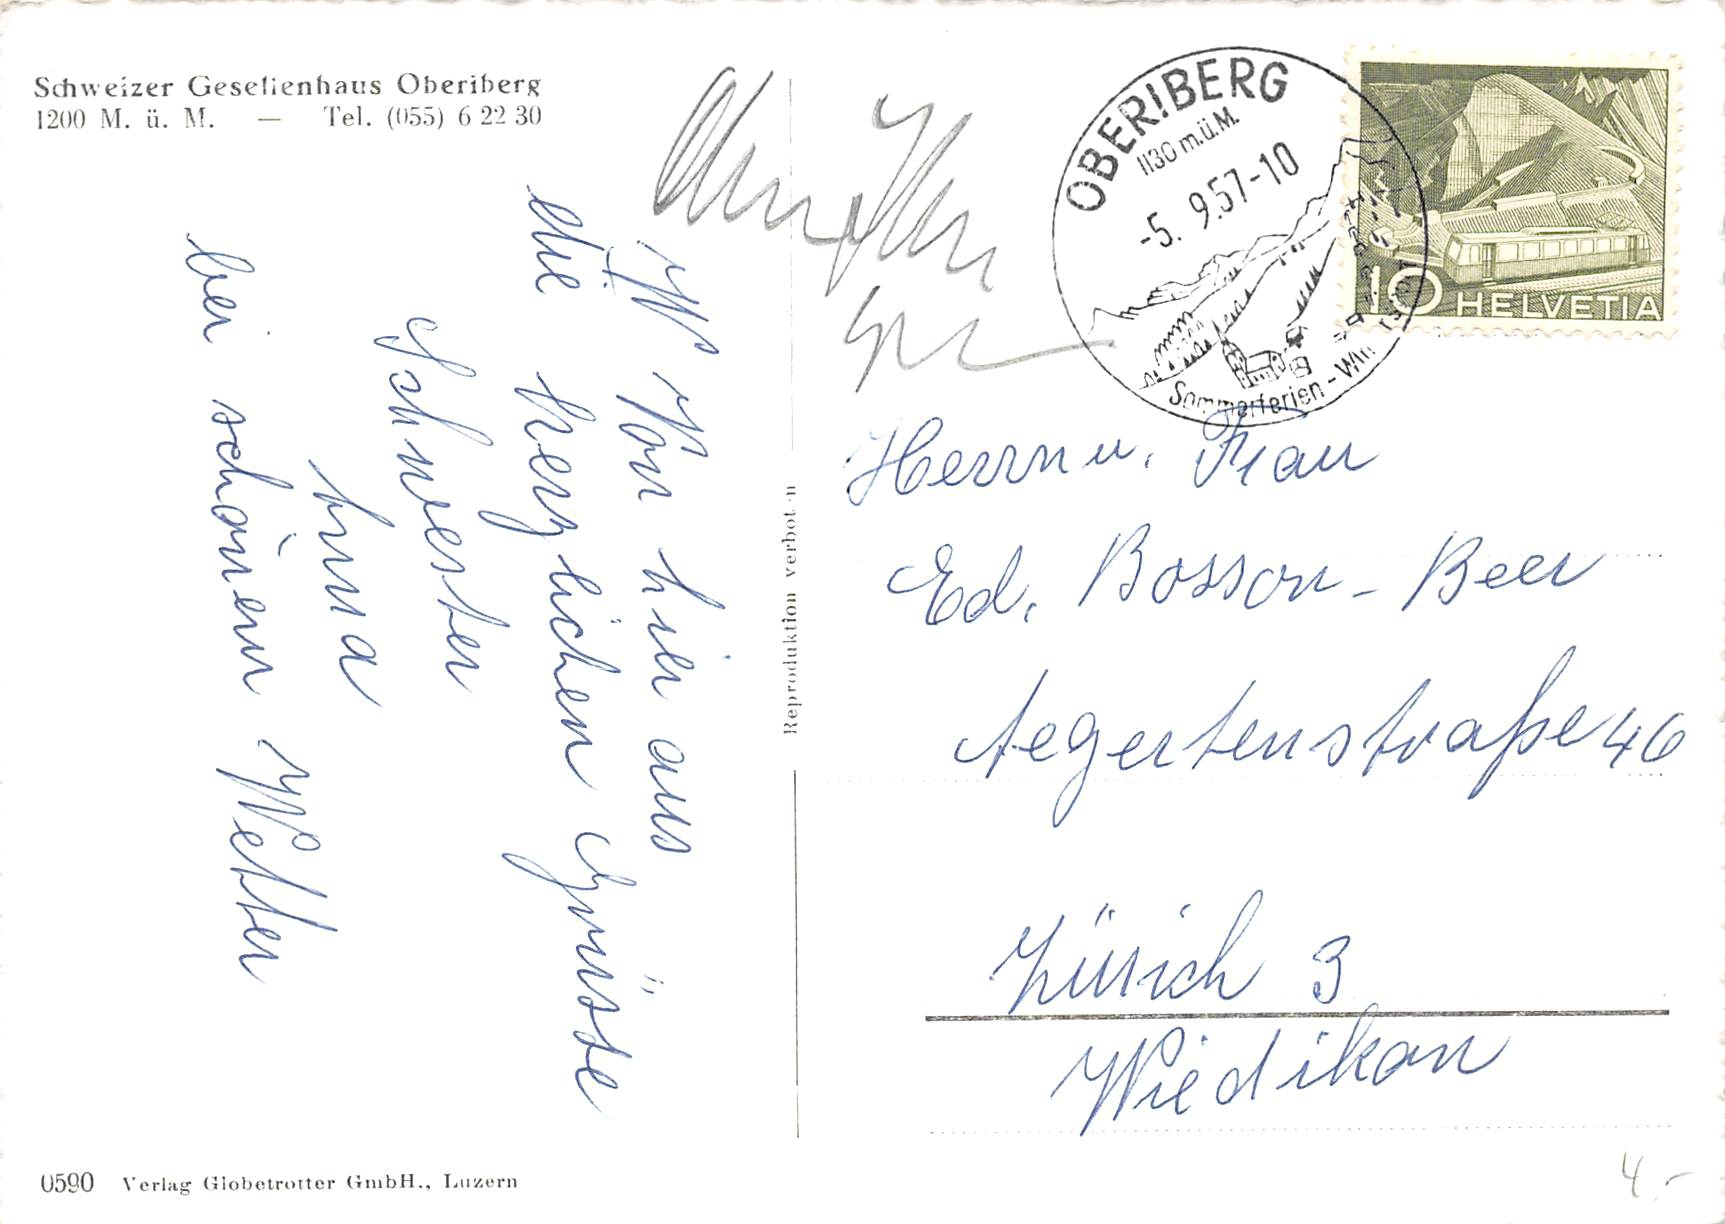 Schweizer Gesellenhaus Oberiberg
1200 M. ü. M. — Tel. (055) 6 22 30
OBERIBERG
1130 m.ü.M.
-5. 9.57-10
Sommerferien - Win
10 HELVETIA
Von hier aus
die herzlichen Grüsse
Schwester
Anna
bei schönem Wetter
Reproduktion verboten
Herrn u. Frau
Ed. Bosson - Beer
Aegertenstraße 46
Zürich 3
Wiedikon
0590 Verlag Globetrotter GmbH., Luzern
4.-